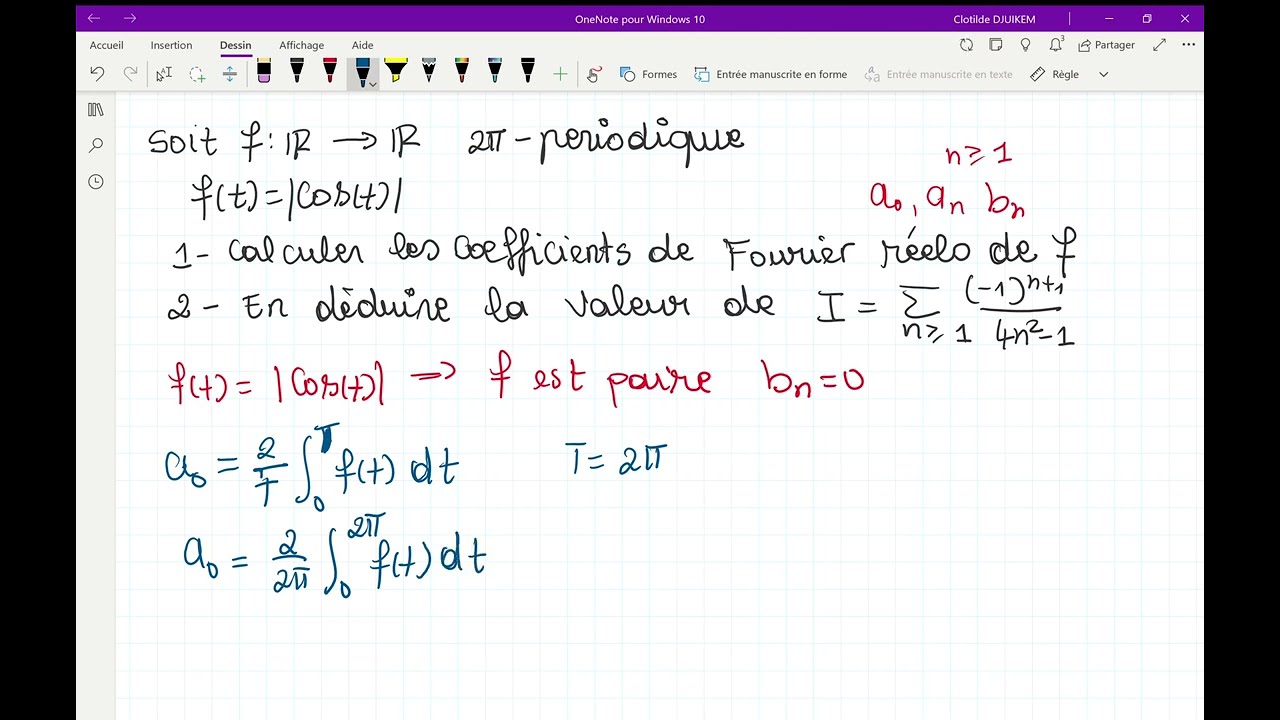 OneNote pour Windows 10
Clotilde DJUIKEM
Accueil Insertion Dessin Affichage Aide
3 Partager
Formes Entrée manuscrite en forme Entrée manuscrite en texte Règle
Soit f: ℝ → ℝ 2π-periodique
n ≥ 1
f(t) = |Cos(t)|
a₀, aₙ bₙ
1- Calculer les Coefficients de Fourier réels de f
2- En déduire la valeur de I = Σ_{n≥1} (-1)^{n+1} / (4n²-1)
f(t) = |Cos(t)| ⇒ f est paire bₙ = 0
a₀ = 2/T ∫₀^T f(t) dt T = 2π
a₀ = 2/2π ∫₀^{2π} f(t) dt